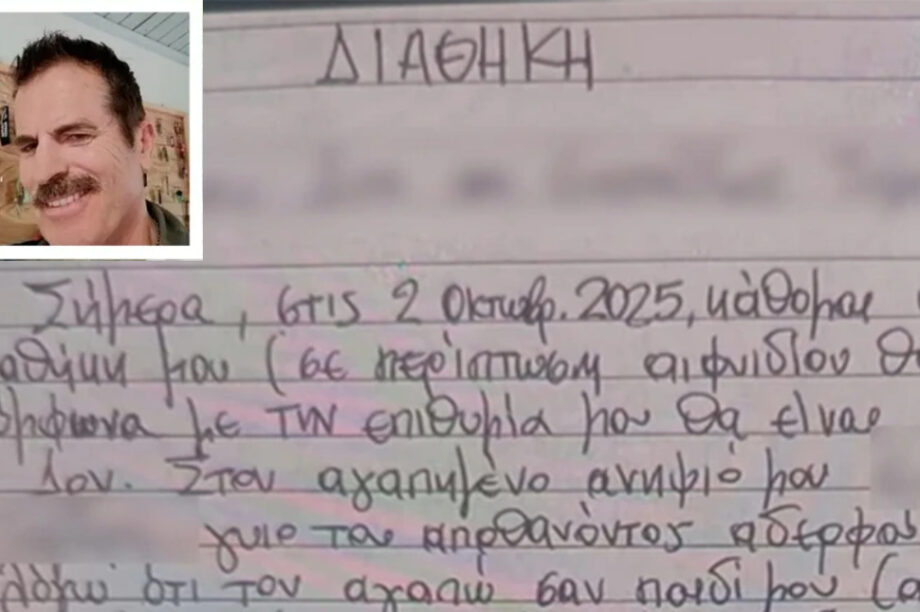 ΔΙΑΘΗΚΗ
Σήμερα, στις 2 Οκτωβρ. 2025, κάθομαι
αθήκη μου (σε περίπτωση αιφνιδίου θ
με την επιθυμία μου θα είναι
Στον αγαπημένο ανηψιό μου
γυιο του αδερφού
ότι τον αγαπώ σαν παιδί μου (α